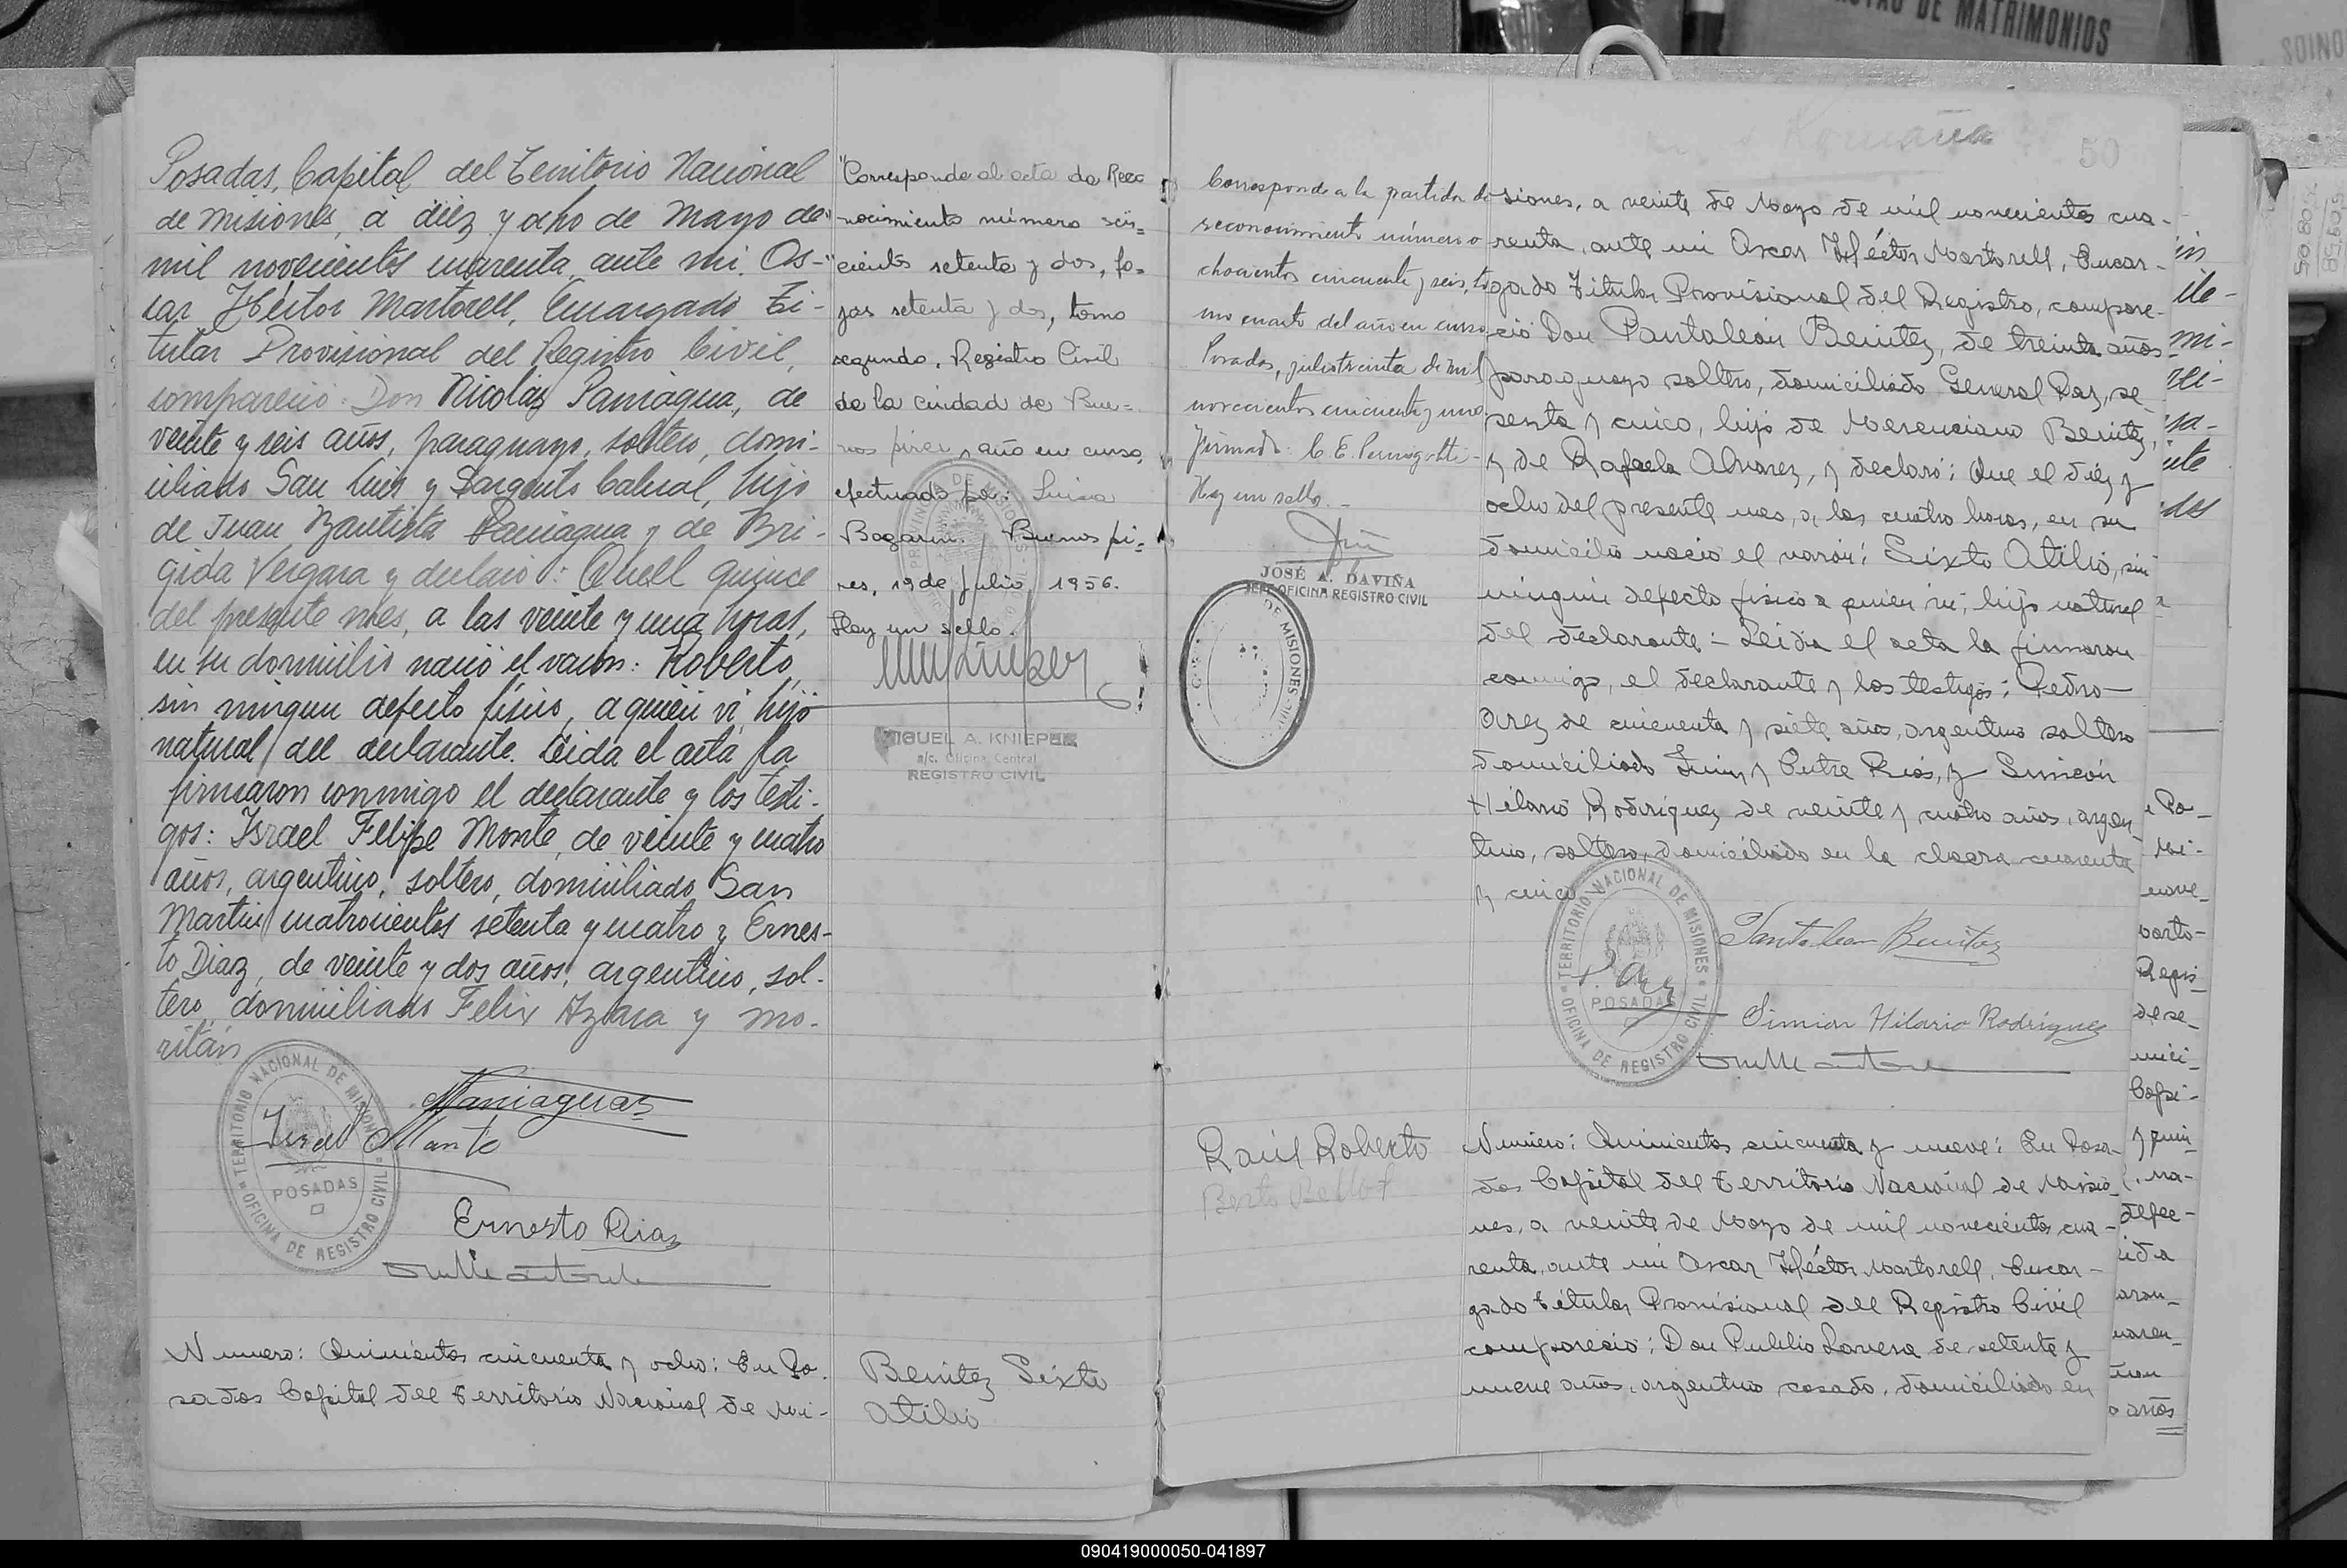 Posadas, Capital del Territorio Nacional
de Misiones, a diez y ocho de Mayo de
mil novecientos cuarenta, ante mi. Os-
car Héctor Martorell, Encargado Ti-
tular Provisional del Registro Civil,
compareció: Don Nicolas Paniagua, de
veinte y seis años, paraguayo, soltero, domi-
ciliado San Luis y Sargento Cabral, hijo
de Juan Bautista Paniagua y de Bri-
gida Vergara y declaró: Que el quince
del presente mes, a las veinte y una horas,
en su domicilio nació el varón: Roberto,
sin ningun defecto físico, a quien vi, hijo
natural del declarante. Leida el acta la
firmaron conmigo el declarante y los testi-
gos: Israel Felipe Monte, de veinte y cuatro
años, argentino, soltero, domiciliado San
Martin cuatrocientos setenta y cuatro y Ernes-
to Diaz, de veinte y dos años, argentino, sol-
tero, domiciliado Felix Azara y mo-
ritán
TERRITORIO NACIONAL DE MISIONES
POSADAS
OFICINA DE REGISTRO CIVIL
Ernesto Diaz
Numero: Quinientos cincuenta y ocho: En Po-
sadas Capital del Territorio Nacional de Mi-
"Corresponde al acta de Reco
nocimiento número seis=
cientos setenta y dos, fo=
jas setenta y dos, tomo
segundo, Registro Civil
de la ciudad de Bue=
nos Aires, año en curso,
efectuado por: Luisa
Bogarin. Buenos Ai=
res, 19 de Julio 1956.
Hay un sello.
MIGUEL A. KNIEPER
a/c. Oficina Central
REGISTRO CIVIL
Benitez Sixto
Atilio
50
Corresponde a la partida de
reconocimiento número o
chocientos cincuenta y seis, to
mo cuarto del año en curso
Posadas, julio treinta de mil
novecientos cincuenta y uno
Firmado: C. E.
Hay un sello.-
JOSÉ A. DAVIÑA
JEFE OFICINA REGISTRO CIVIL
DE MISIONES
siones, a veinte de Mayo de mil novecientos cua-
renta, ante mi Oscar Héctor Martorell, Encar-
gado Titular Provisional del Registro, compare-
ció Don Pantaleón Benitez, de treinta años
paraguayo soltero, domiciliado General Paz, se
senta y cinco, hijo de Merenciano Benitez,
y de Rafaela Alvarez, y declaró: Que el diez y
ocho del presente mes, a las cuatro horas, en su
domicilio nació el varón: Sixto Atilio, sin
ningun defecto fisico a quien vi, hijo natural
del declarante:- Leida el acta la firmaron
conmigo, el declarante y los testigos: Pedro
Arez de cincuenta y siete años, argentino soltero
domiciliado Junin y Entre Rios, y Simeón
Hilario Rodriguez de veinte y cuatro años, argen-
tino, soltero, domiciliado en la chacra cuarenta
y cinco
TERRITORIO NACIONAL DE MISIONES
POSADAS
OFICINA DE REGISTRO CIVIL
Pantaleon Benitez
Simion Hilario Rodriguez
Raúl Roberto
Numero: Quinientos cincuenta y nueve: En Posa-
das Capital del Territorio Nacional de Misio-
nes, a veinte de Mayo de mil novecientos cua-
renta, ante mi Oscar Héctor Martorell, Encar-
gado Titular Provisional del Registro Civil
compareció: Don Publio Lavera de setenta y
nueve años, argentino casado, domiciliado en
DE MATRIMONIOS
090419000050-041897